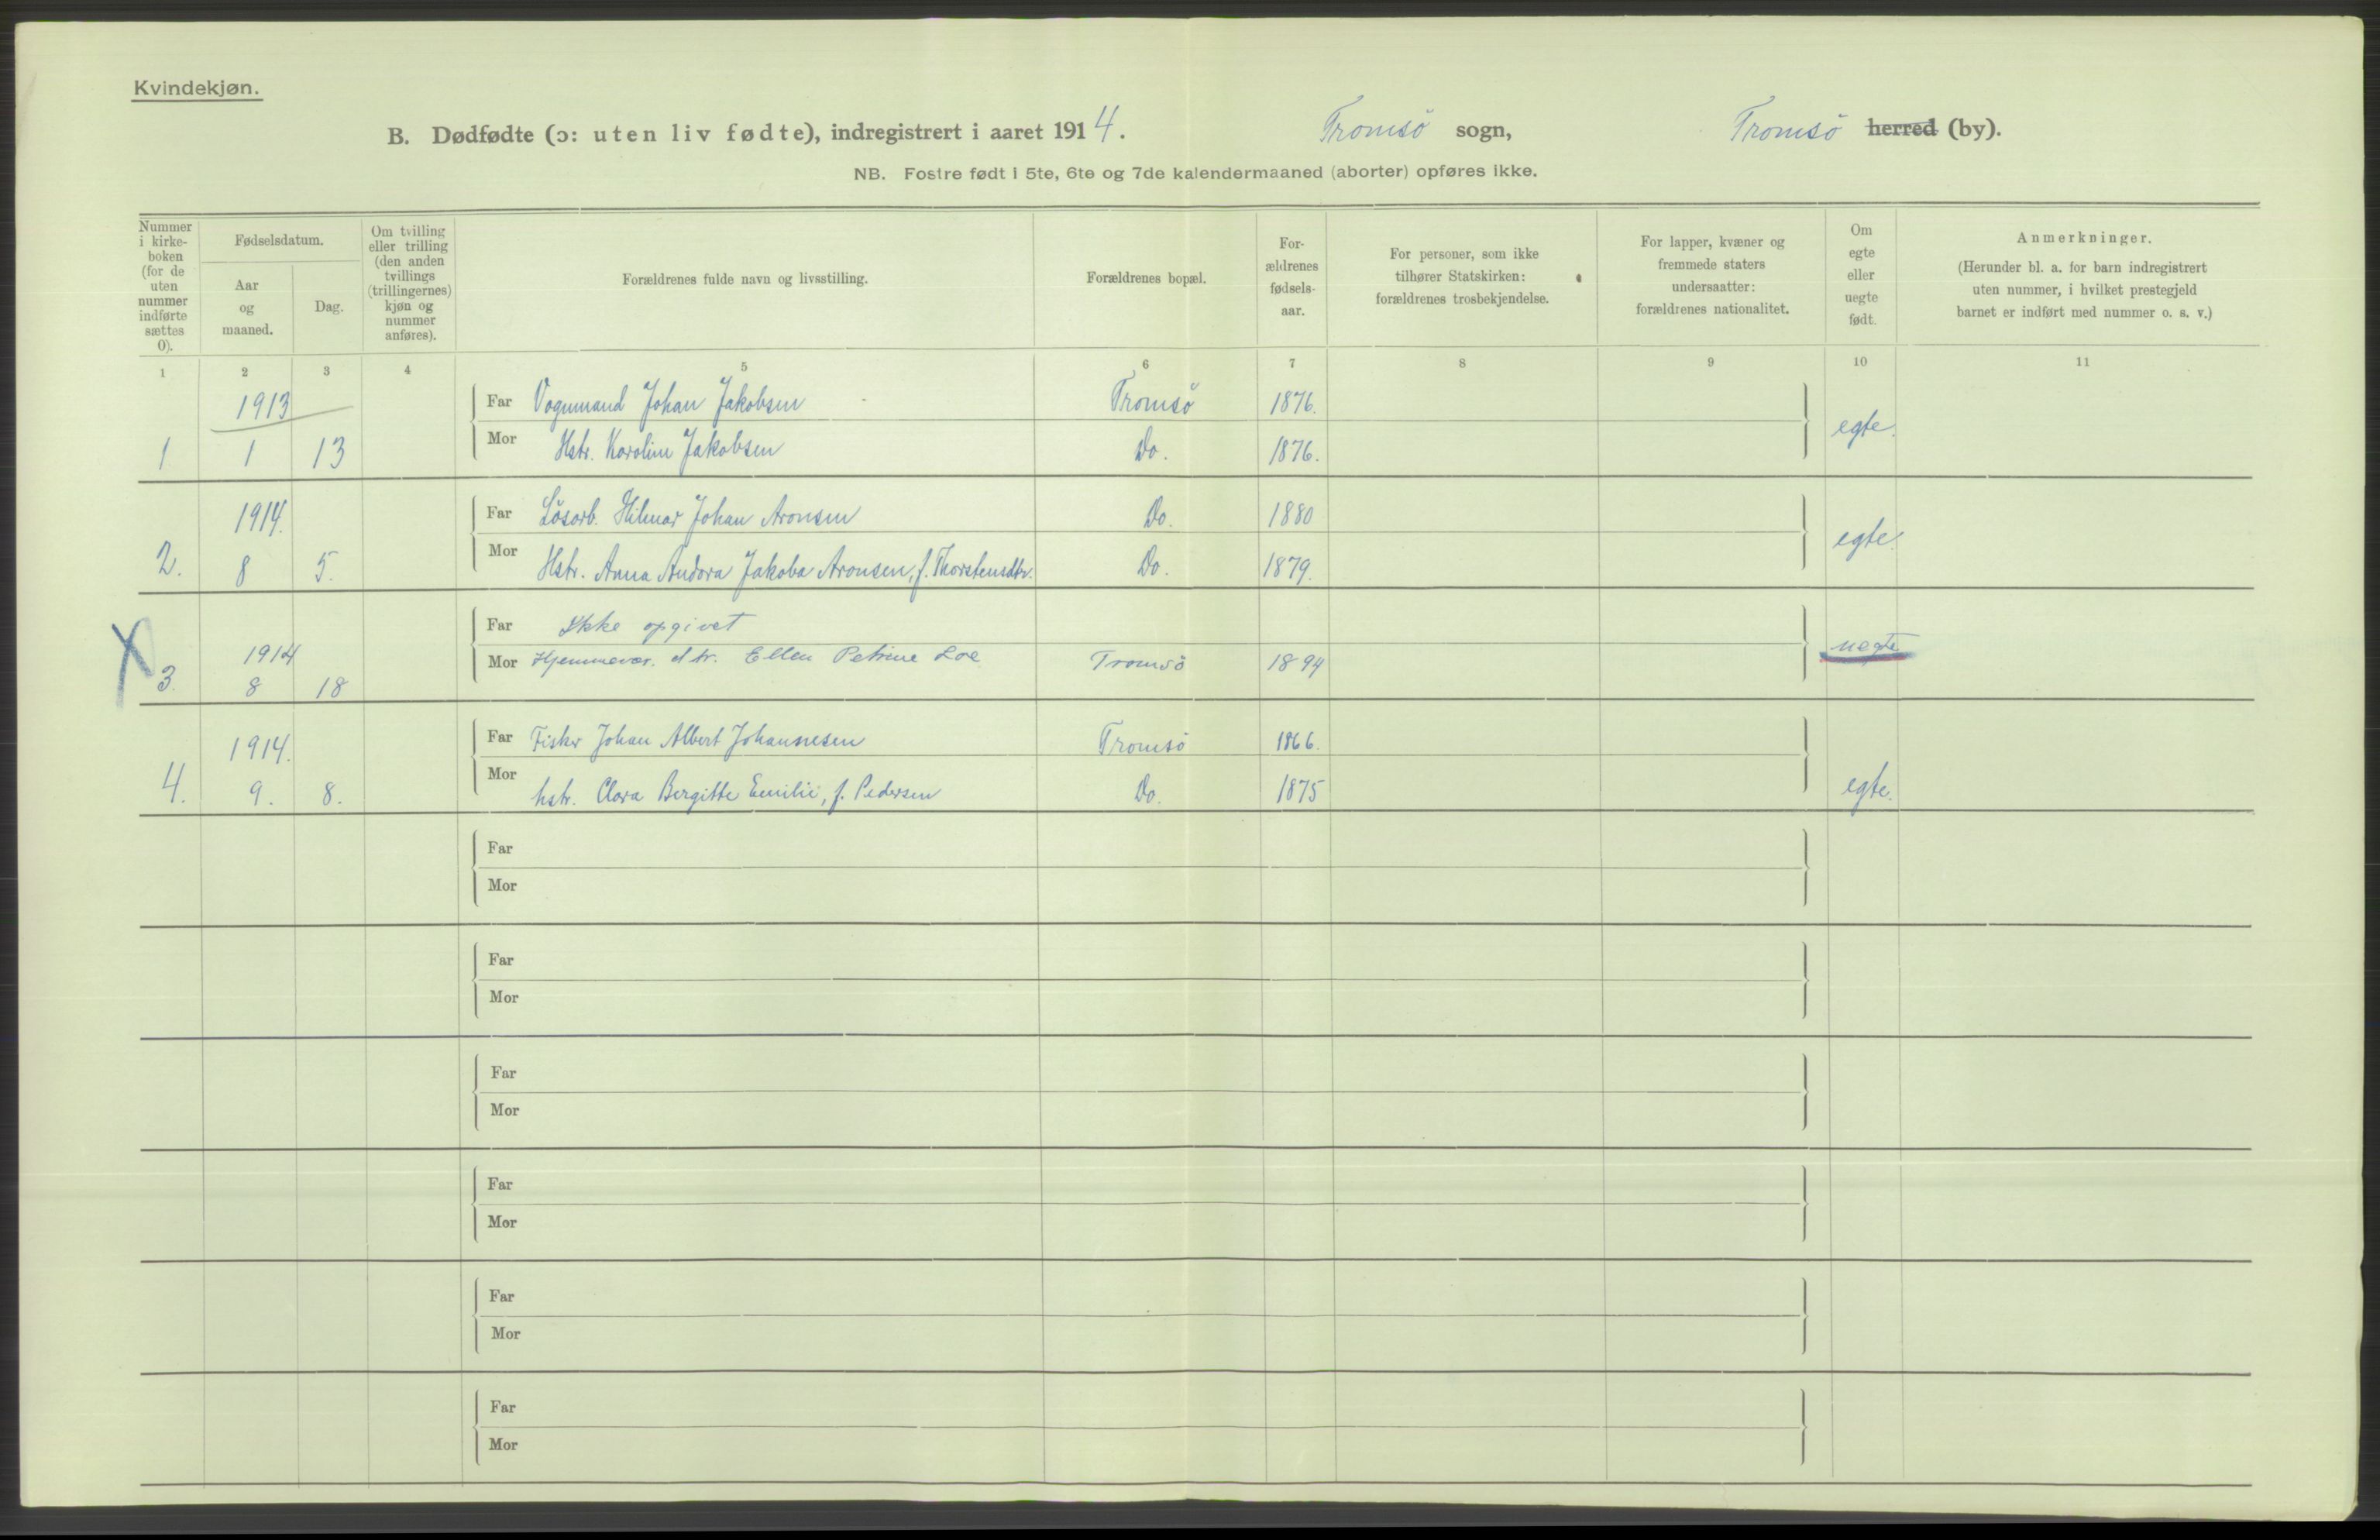 Kvindekjøn.
B. Dødfødte (ɔ: uten liv fødte), indregistrert i aaret 1914. Tromsö sogn, Tromsö herred (by).
NB. Fostre født i 5te, 6te og 7de kalendermaaned (aborter) opføres ikke.
Nummer
i kirke-
boken
(for de
uten
nummer
indførte
sættes
0).
Fødselsdatum.
Aar
og
maaned.
Dag.
Om tvilling
eller trilling
(den anden
tvillings
(trillingernes)
kjøn og
nummer
anføres).
Forældrenes fulde navn og livsstilling.
Forældrenes bopæl.
For-
ældrenes
fødsels-
aar.
For personer, som ikke
tilhører Statskirken:
forældrenes trosbekjendelse.
For lapper, kvæner og
fremmede staters
undersaatter:
forældrenes nationalitet.
Om
egte
eller
uegte
født.
Anmerkninger.
(Herunder bl. a. for barn indregistrert
uten nummer, i hvilket prestegjeld
barnet er indført med nummer o. s. v.)
1 2 3 4 5 6 7 8 9 10 11
1913
Far Vognmand Johan Jakobsen Tromsö 1876.
1 1 13 Mor Hstr. Karoline Jakobsen Do. 1876. egte.
1914.
Far Lösarb. Hilmar Johan Aronsen Do. 1880
2. 8 5. Mor Hstr. Anna Andora Jakoba Aronsen, f. Thorstensdtr. Do. 1879. egte.
Far Ikke opgivet
X 3. 1914 8 18 Mor Hjemmevær. dtr. Ellen Petrine Loe Tromsö 1894 uegte
1914.
Far Fisker Johan Albert Johannesen Tromsö 1866.
4. 9. 8. Mor hstr. Clara Bergitte Emilie, f. Pedersen Do. 1875 egte.
Far
Mor
Far
Mor
Far
Mor
Far
Mor
Far
Mor
Far
Mor